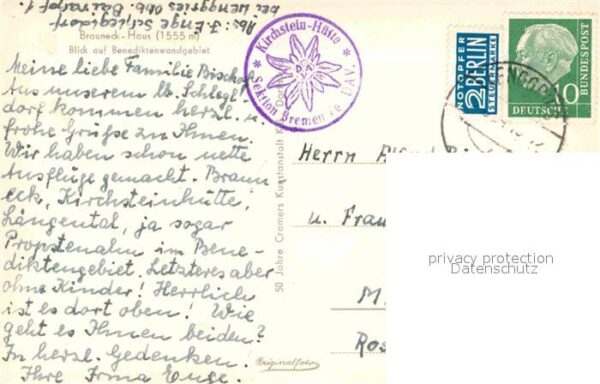 Abs: J. Enge Schlegldorf
bei Lenggries Obb.
Brauneck-Haus (1555 m)
Blick auf Benediktenwandgebiet
Meine liebe Familie Bischof
Aus unserem lb. Schlegl
dorf kommen herzl. u.
frohe Grüße zu Ihnen.
Wir haben schon nette
Ausflüge gemacht. Braun
eck, Kirchsteinhütte,
Längental, ja sogar
Propstenalm im Bene-
diktengebiet. Letzteres aber
ohne Kinder! Herrlich
ist es dort oben! Wie
geht es Ihnen beiden?
In herzl. Gedenken.
Ihre Irma Enge.
50 Jahre Cromers Kunstanstalt
Originalfoto
* Kirchstein-Hütte *
Sektion Bremen DAV
DAV
NOTOPFER
2 BERLIN
STEUERMARKE
DEUTSCHE
BUNDESPOST
10
Herrn Alfred
u. Frau
M
Ros
privacy protection
Datenschutz